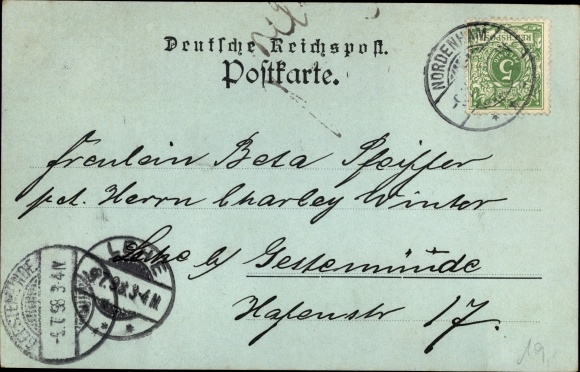 Deutsche Reichspost.
Postkarte.
NORDENHAM
REICHSPOST
5
Fräulein Beta Pfeiffer
p.ad. Herrn Charley Winter
Lehe b/ Geestemünde
Hafenstr 17.
LEHE
9.7.98.3-4N.
GEESTEMÜNDE
-9.7.98 3-4N
19,-